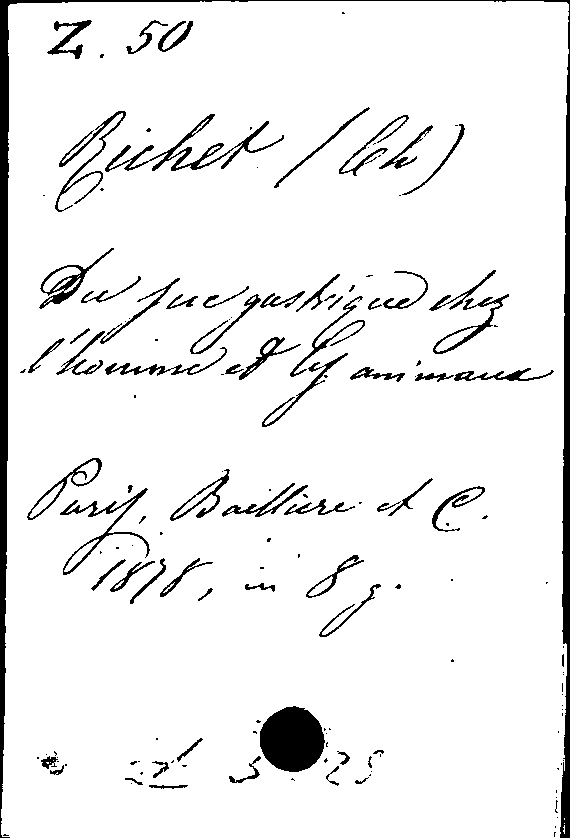 Z. 50
Richet (Ch)
Du suc gastrique chez
l'homme et les animaux
Paris, Baillière et C.
1878, in 8g.